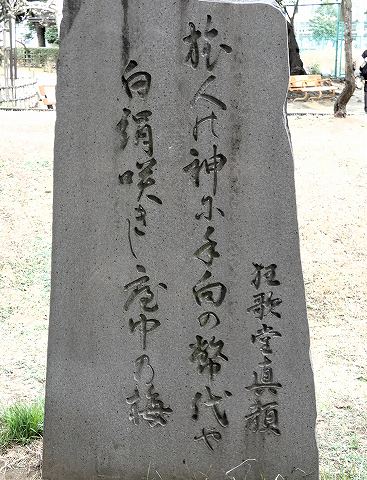 狂歌堂真顔
旅人の神に手向の幣代や
白絹咲きし庭中の梅